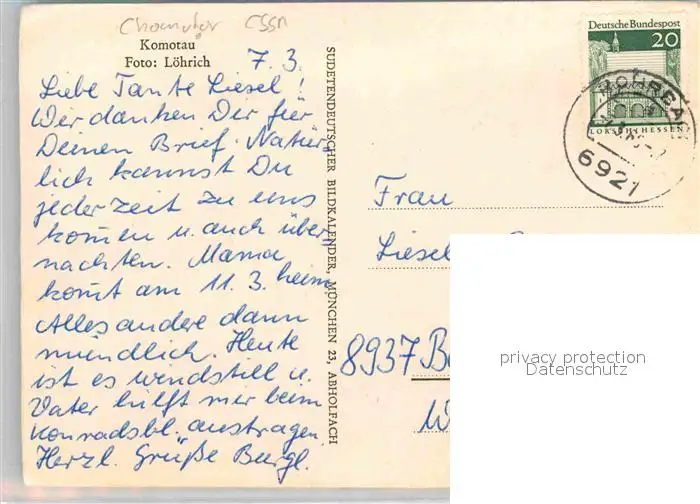 Chomutov ČSSR
Komotau
Foto: Löhrich
7. 3.
Liebe Tante Liesel!
Wir danken Dir für
Deinen Brief. Natür-
lich kannst Du
jederzeit zu uns
kom̄en u. auch über-
nachten. Mama
kom̄t am 11. 3. heim.
Alles andere dann
mündlich. Heute
ist es windstill u.
Vater hilft mir beim
Konradsbl. austragen.
Herzl. Grüße Burgl.
SUDETENDEUTSCHER BILDKALENDER, MÜNCHEN 23, ABHOLFACH
Deutsche Bundespost
20
LORSCH/HESSEN
ROHRBACH
6921
Frau
Liesel
8937 Ba
W
privacy protection
Datenschutz